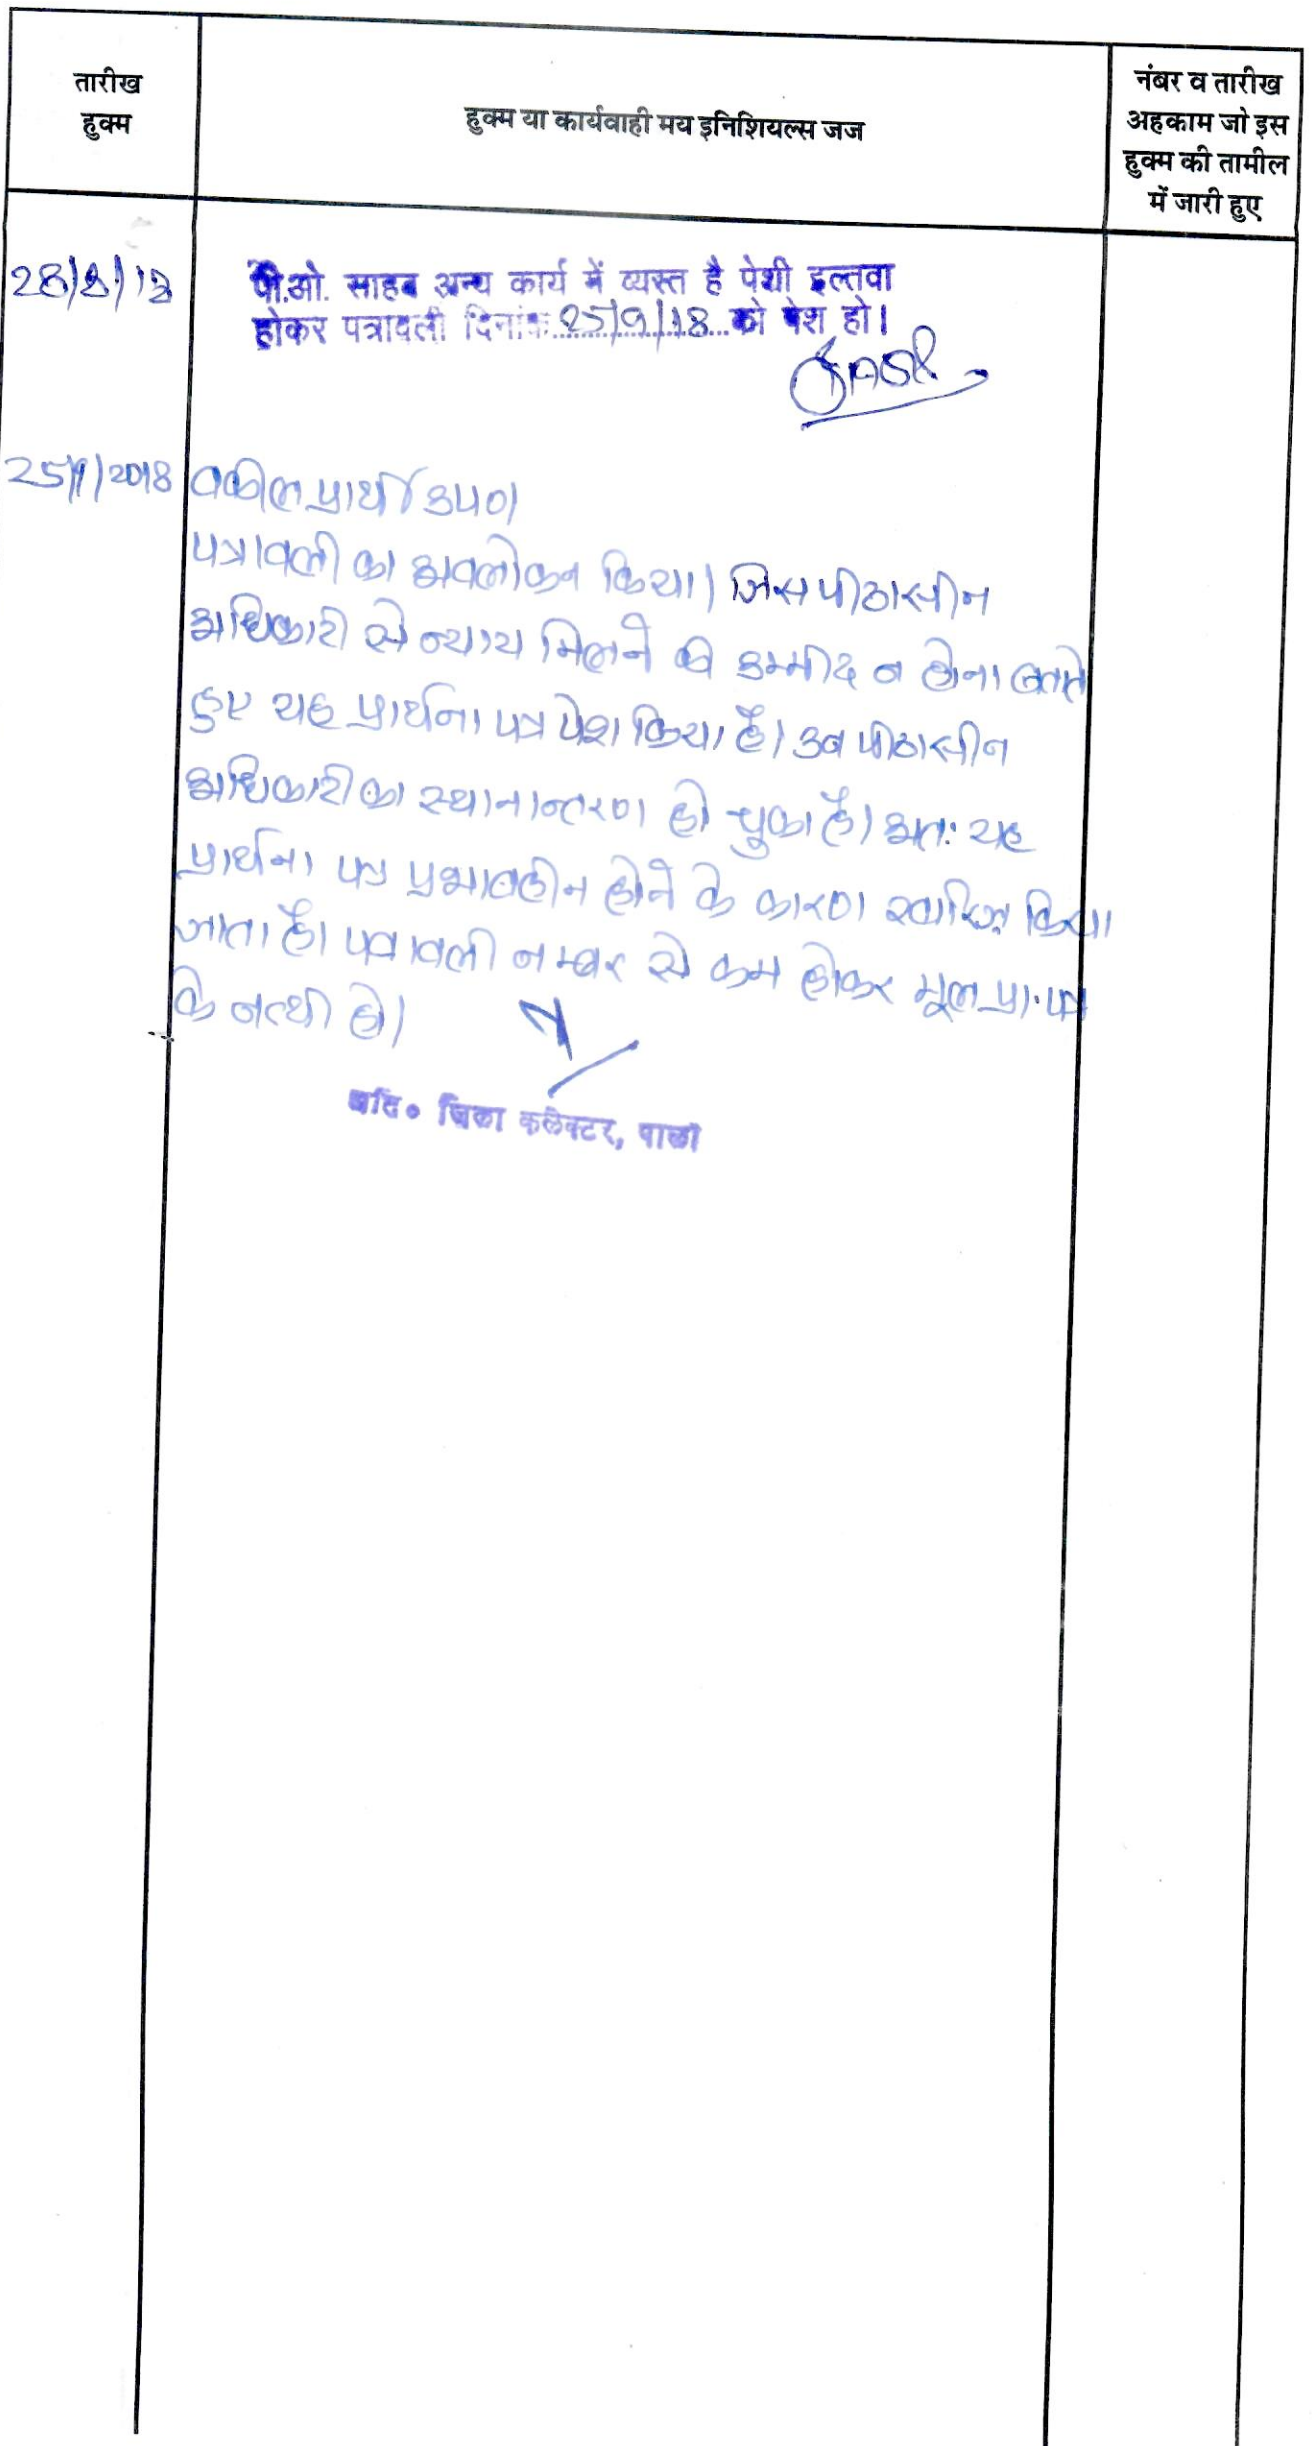 तारीख
हुक्म
हुक्म या कार्यवाही मय इनिशियल्स जज
नंबर व तारीख
अहकाम जो इस
हुक्म की तामील
में जारी हुए
28/8/18
पी.ओ. साहब अन्य कार्य में व्यस्त है पेशी इल्तवा
होकर पत्रावली दिनांक 25/9/18 को पेश हो।
25/9/2018 वकील प्रार्थी उप०।
पत्रावली का अवलोकन किया। जिस पीठासीन
अधिकारी से न्याय मिलने की उम्मीद न होना बताते
हुए यह प्रार्थना पत्र पेश किया है। उन पीठासीन
अधिकारी का स्थानान्तरण हो चुका है। अतः यह
प्रार्थना पत्र प्रभावहीन होने के कारण खारिज किया
जाता है। पत्रावली नम्बर से कम होकर मूल प्रा. पत्र
के नत्थी हो।
अति० जिला कलेक्टर, पाली